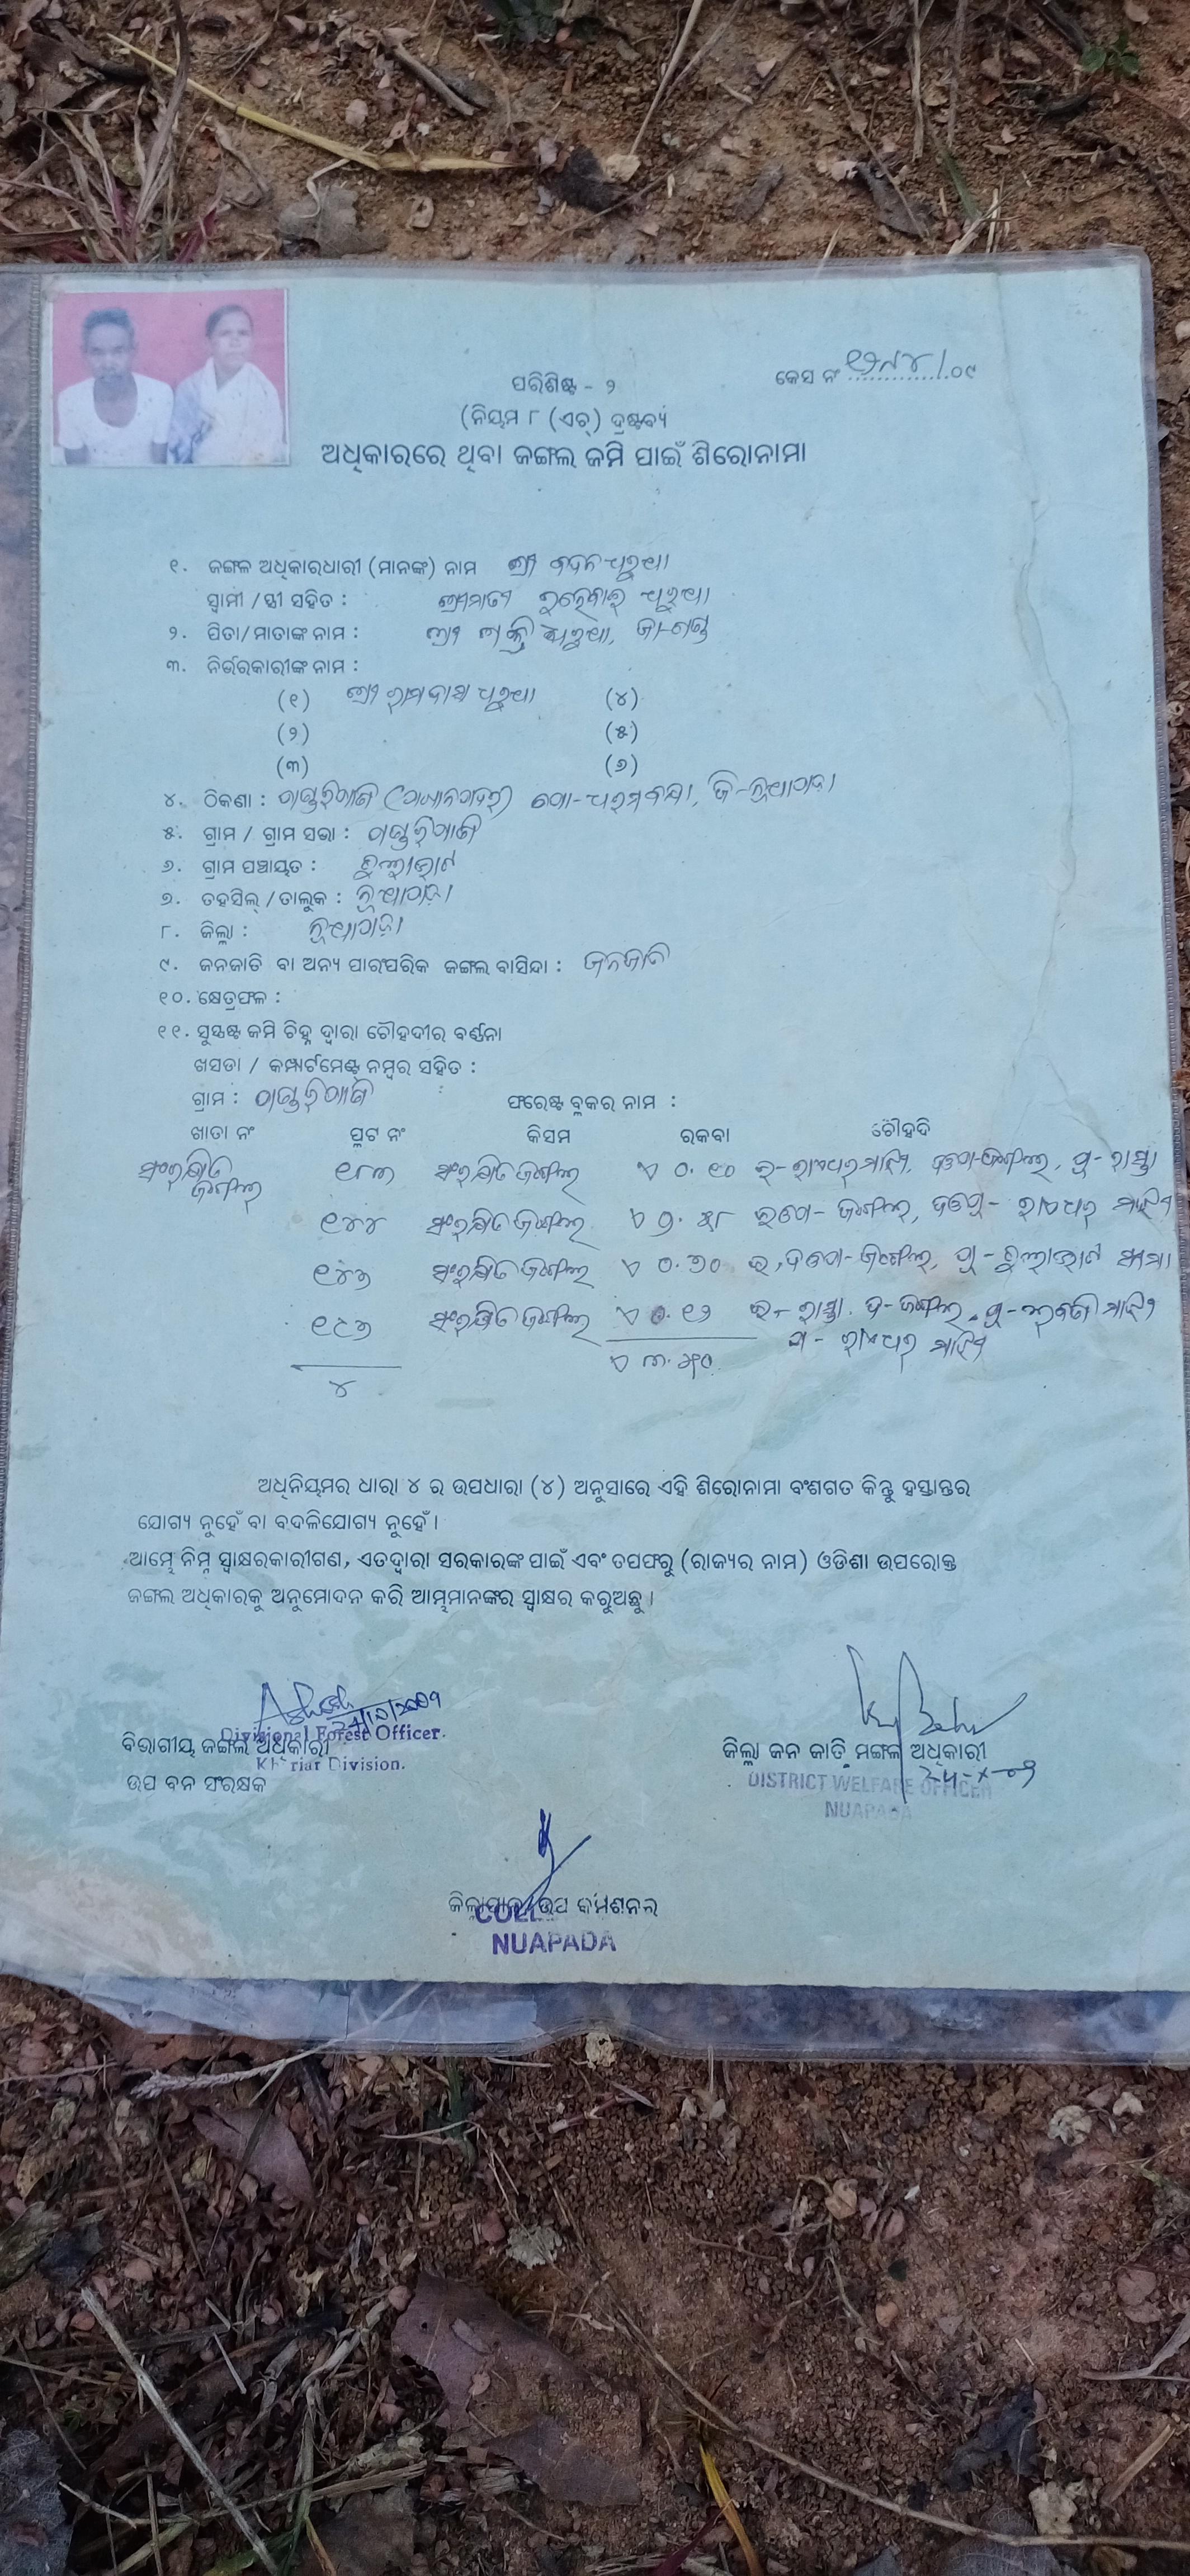 କେସ ନଂ ୧୨୯୪/୦୯
ପରିଶିଷ୍ଟ - ୨
(ନିୟମ ୮ (ଏଚ୍) ଦ୍ରଷ୍ଟବ୍ୟ
ଅଧିକାରରେ ଥିବା ଜଙ୍ଗଲ ଜମି ପାଇଁ ଶିରୋନାମା
୧. ଜଙ୍ଗଳ ଅଧିକାରଧାରୀ (ମାନଙ୍କ) ନାମ ଶ୍ରୀ ବଦନ ଧରୁଆ
ସ୍ବାମୀ / ସ୍ତ୍ରୀ ସହିତ : ଶ୍ରୀମତୀ ଧରୁଆ
୨. ପିତା/ମାତାଙ୍କ ନାମ : ଧରୁଆ, ଜା-ଗଣ୍ଡ
୩. ନିର୍ଭରକାରୀଙ୍କ ନାମ :
(୧) ଶ୍ରୀ ରାମଦାସ ଧରୁଆ (୪)
(୨) (୫)
(୩) (୬)
୪. ଠିକଣା : ପୋ-ଧରମବନ୍ଧା, ଜି-ନୂଆପଡ଼ା
୫. ଗ୍ରାମ / ଗ୍ରାମ ସଭା :
୬. ଗ୍ରାମ ପଞ୍ଚାୟତ :
୭. ତହସିଲ୍ / ତାଲୁକ : ନୂଆପଡ଼ା
୮. ଜିଲ୍ଲା : ନୂଆପଡ଼ା
୯. ଜନଜାତି ବା ଅନ୍ୟ ପାରଂପରିକ ଜଙ୍ଗଲ ବାସିନ୍ଦା : ଜନଜାତି
୧୦. କ୍ଷେତ୍ରଫଳ :
୧୧. ସୁସ୍ପଷ୍ଟ ଜମି ଚିହ୍ନ ଦ୍ୱାରା ଚୌହଦୀର ବର୍ଣ୍ଣନା
ଖସଡା / କମ୍ପାର୍ଟମେଣ୍ଟ ନମ୍ବର ସହିତ :
ଗ୍ରାମ : ଫରେଷ୍ଟ ବ୍ଲକର ନାମ :
ଖାତା ନଂ ପ୍ଲଟ ନଂ କିସମ ରକବା ଚୌହଦି
ସଂରକ୍ଷିତ ଜଙ୍ଗଲ ୧୮୩ ସଂରକ୍ଷିତ ଜଙ୍ଗଲ ଏ ୦.୧୦ ଉ-ରାଏଧର ମାଝୀ, ଦପ-ଜଙ୍ଗଲ, ପୂ-ରାସ୍ତା
୧୪୪ ସଂରକ୍ଷିତ ଜଙ୍ଗଲ ଉପ-ଜଙ୍ଗଲ, ଦପୂ-ରାଏଧର ମାଝୀ
୧୪୬ ସଂରକ୍ଷିତ ଜଙ୍ଗଲ ଏ ୦.୭୦ ଉ,ଦପ-ଜଙ୍ଗଲ, ପୂ- ସୀମା
୧୯୬ ସଂରକ୍ଷିତ ଜଙ୍ଗଲ ଏ ୦.୧୨ ଉ-ରାସ୍ତା. ଦ-ଜଙ୍ଗଲ, ପୂ- ମାଝୀ
୪ ପ-ରାଏଧର ମାଝୀ
ଅଧିନିୟମର ଧାରା ୪ ର ଉପଧାରା (୪) ଅନୁସାରେ ଏହି ଶିରୋନାମା ବଂଶଗତ କିନ୍ତୁ ହସ୍ତାନ୍ତର
ଯୋଗ୍ୟ ନୁହେଁ ବା ବଦଳିଯୋଗ୍ୟ ନୁହେଁ ।
ଆମ୍ଭେ ନିମ୍ନ ସ୍ୱାକ୍ଷରକାରୀଗଣ, ଏତଦ୍ୱାରା ସରକାରଙ୍କ ପାଇଁ ଏବଂ ତପଫରୁ (ରାଜ୍ୟର ନାମ) ଓଡିଶା ଉପରୋକ୍ତ
ଜଙ୍ଗଲ ଅଧିକାରକୁ ଅନୁମୋଦନ କରି ଆମ୍ଭମାନଙ୍କର ସ୍ୱାକ୍ଷର କରୁଅଛୁ ।
Divisional Forest Officer.
ବିଭାଗୀୟ ଜଙ୍ଗଲ ଅଧିକାରୀ
Khariar Division.
ଉପ ବନ ସଂରକ୍ଷକ
ଜିଲ୍ଲା ଜନ ଜାତି ମଙ୍ଗଳ ଅଧିକାରୀ
DISTRICT WELFARE OFFICER
NUAPADA
ଜିଲ୍ଲାପାଳ/ଉପ କମିଶନର
NUAPADA